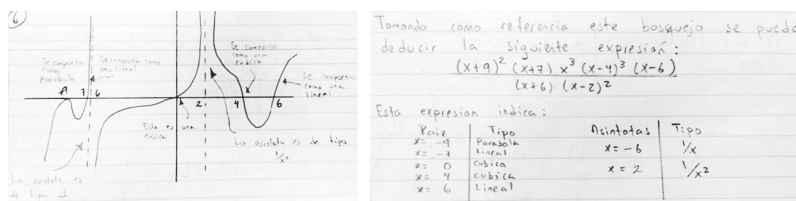 6
Se comporta
como
parabola
Se comporta como
una lineal
Se comporta
como una
cubica
Se comporta
como una
lineal
-9 7 6 2 4 6
Esta es una
cubica
La asintota es de tipo
1/x²
La asintota es
de tipo
Tomando como referencia este bosquejo se puede
deducir la siguiente expresión:
(x+9)² (x+7) x³ (x-4)³ (x-6)
(x+6) (x-2)²
Esta expresion indica:
Raiz Tipo Asintotas Tipo
x= -9 Parabola x= -6 1/x
x= -7 Lineal x= 2 1/x²
x= 0 cubica
x= 4 cubica
x= 6 Lineal